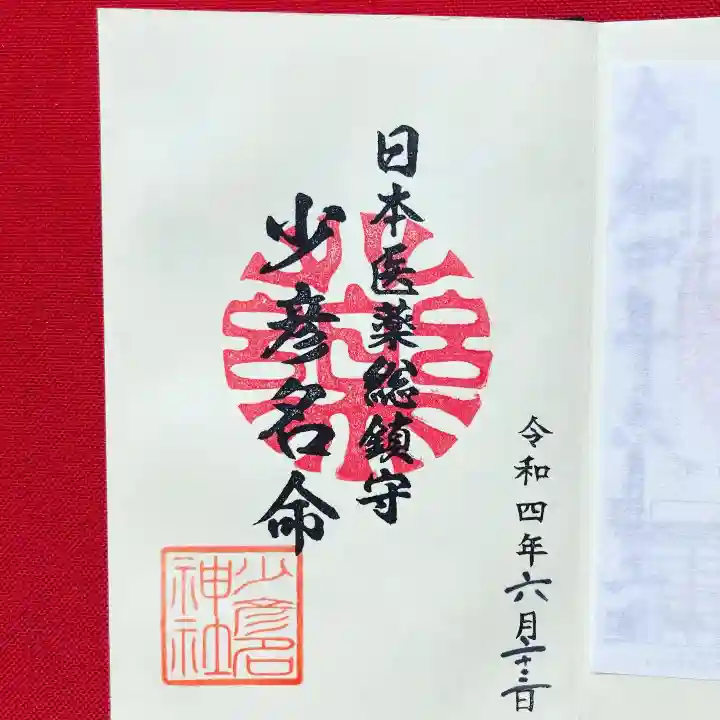 日本医薬総鎮守
少彦名命
令和四年六月二十三日
少彦名
神社